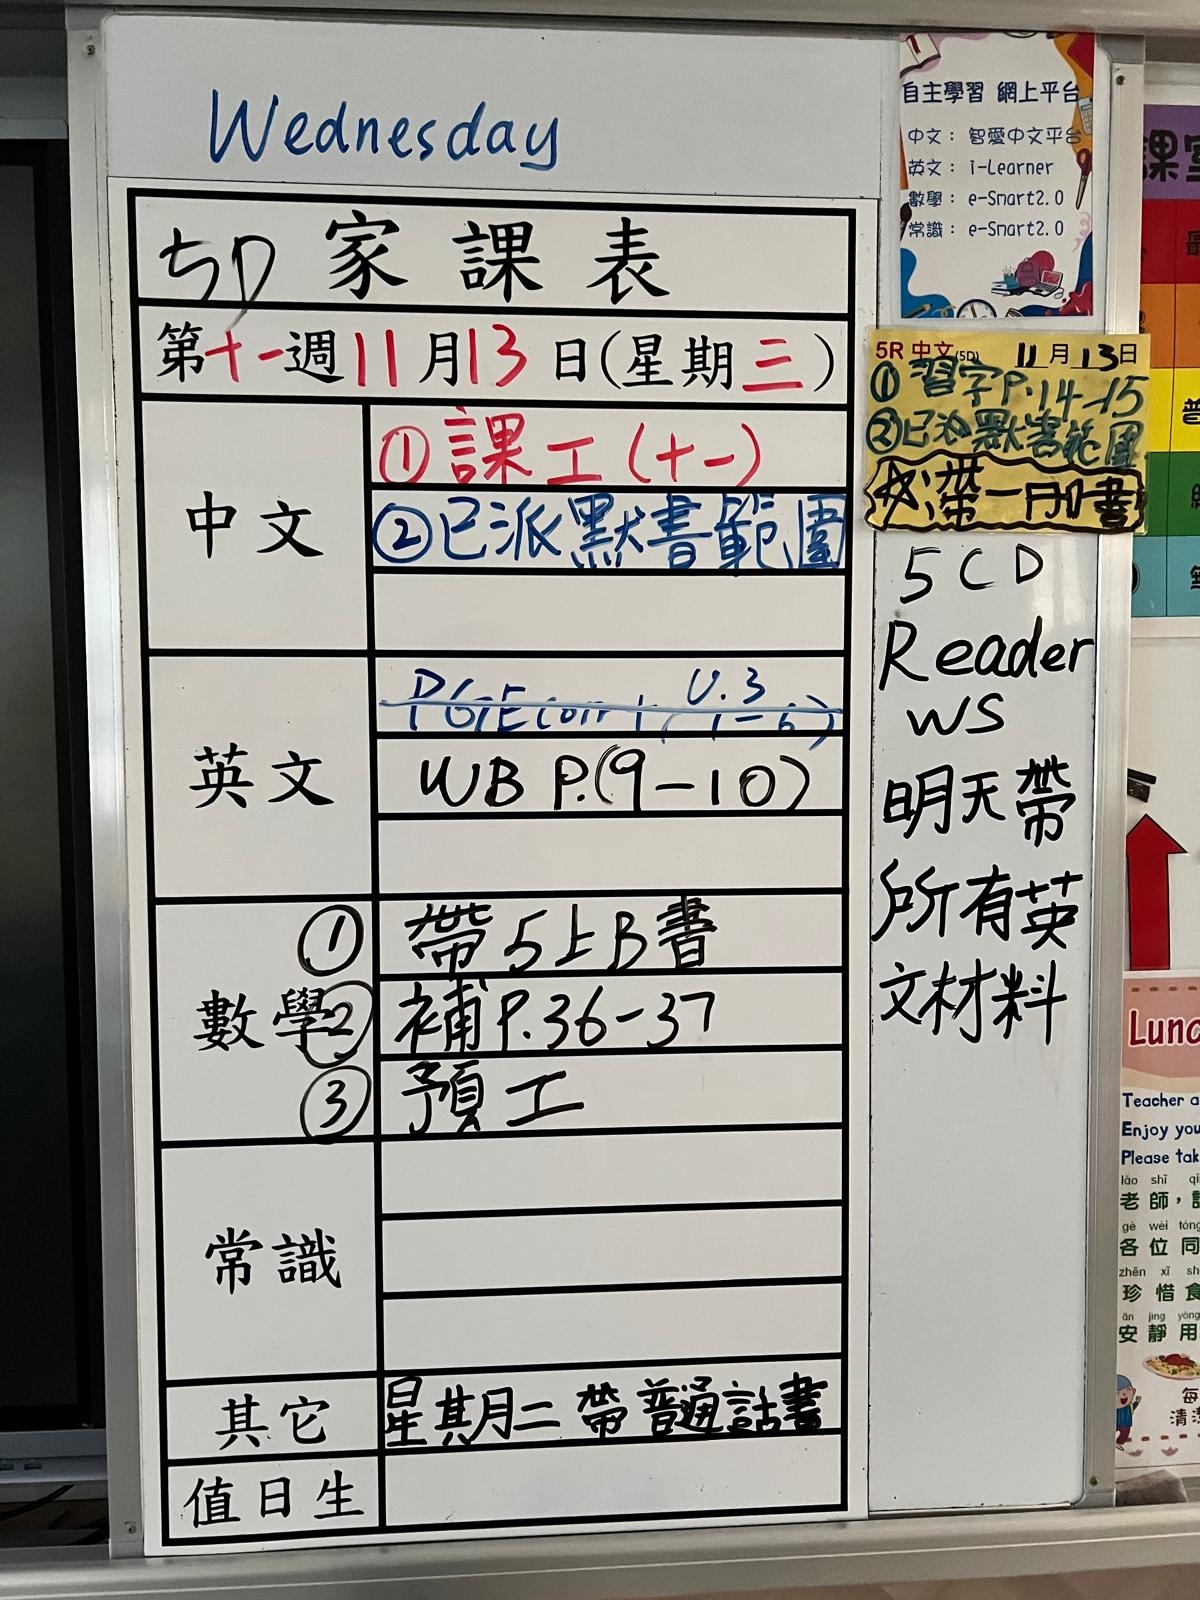 Wednesday
5D 家課表
第十一週11月13日(星期三)
中文
①課工(十一)
②已派默書範圍
英文
U.3
WB P.(9-10)
數學
① 帶5上B書
② 補P.36-37
③ 預工
常識
其它
星其月二帶普通話書
值日生
自主學習 網上平台
中文：智愛中文平台
英文：i-Learner
數學：e-Smart2.0
常識：e-Smart2.0
5R 中文(5D) 11月13日
①習字P.14-15
②已派默書範圍
必帶一冊書
5CD
Reader
WS
明天帶
所有英
文材料
課室
Lunc
Teacher a
Enjoy you
Please tak
lǎo shī
老師，
gè wèi tóng
各位同
zhēn xī sh
珍惜食
ān jìng yòng
安靜用
每
清潔